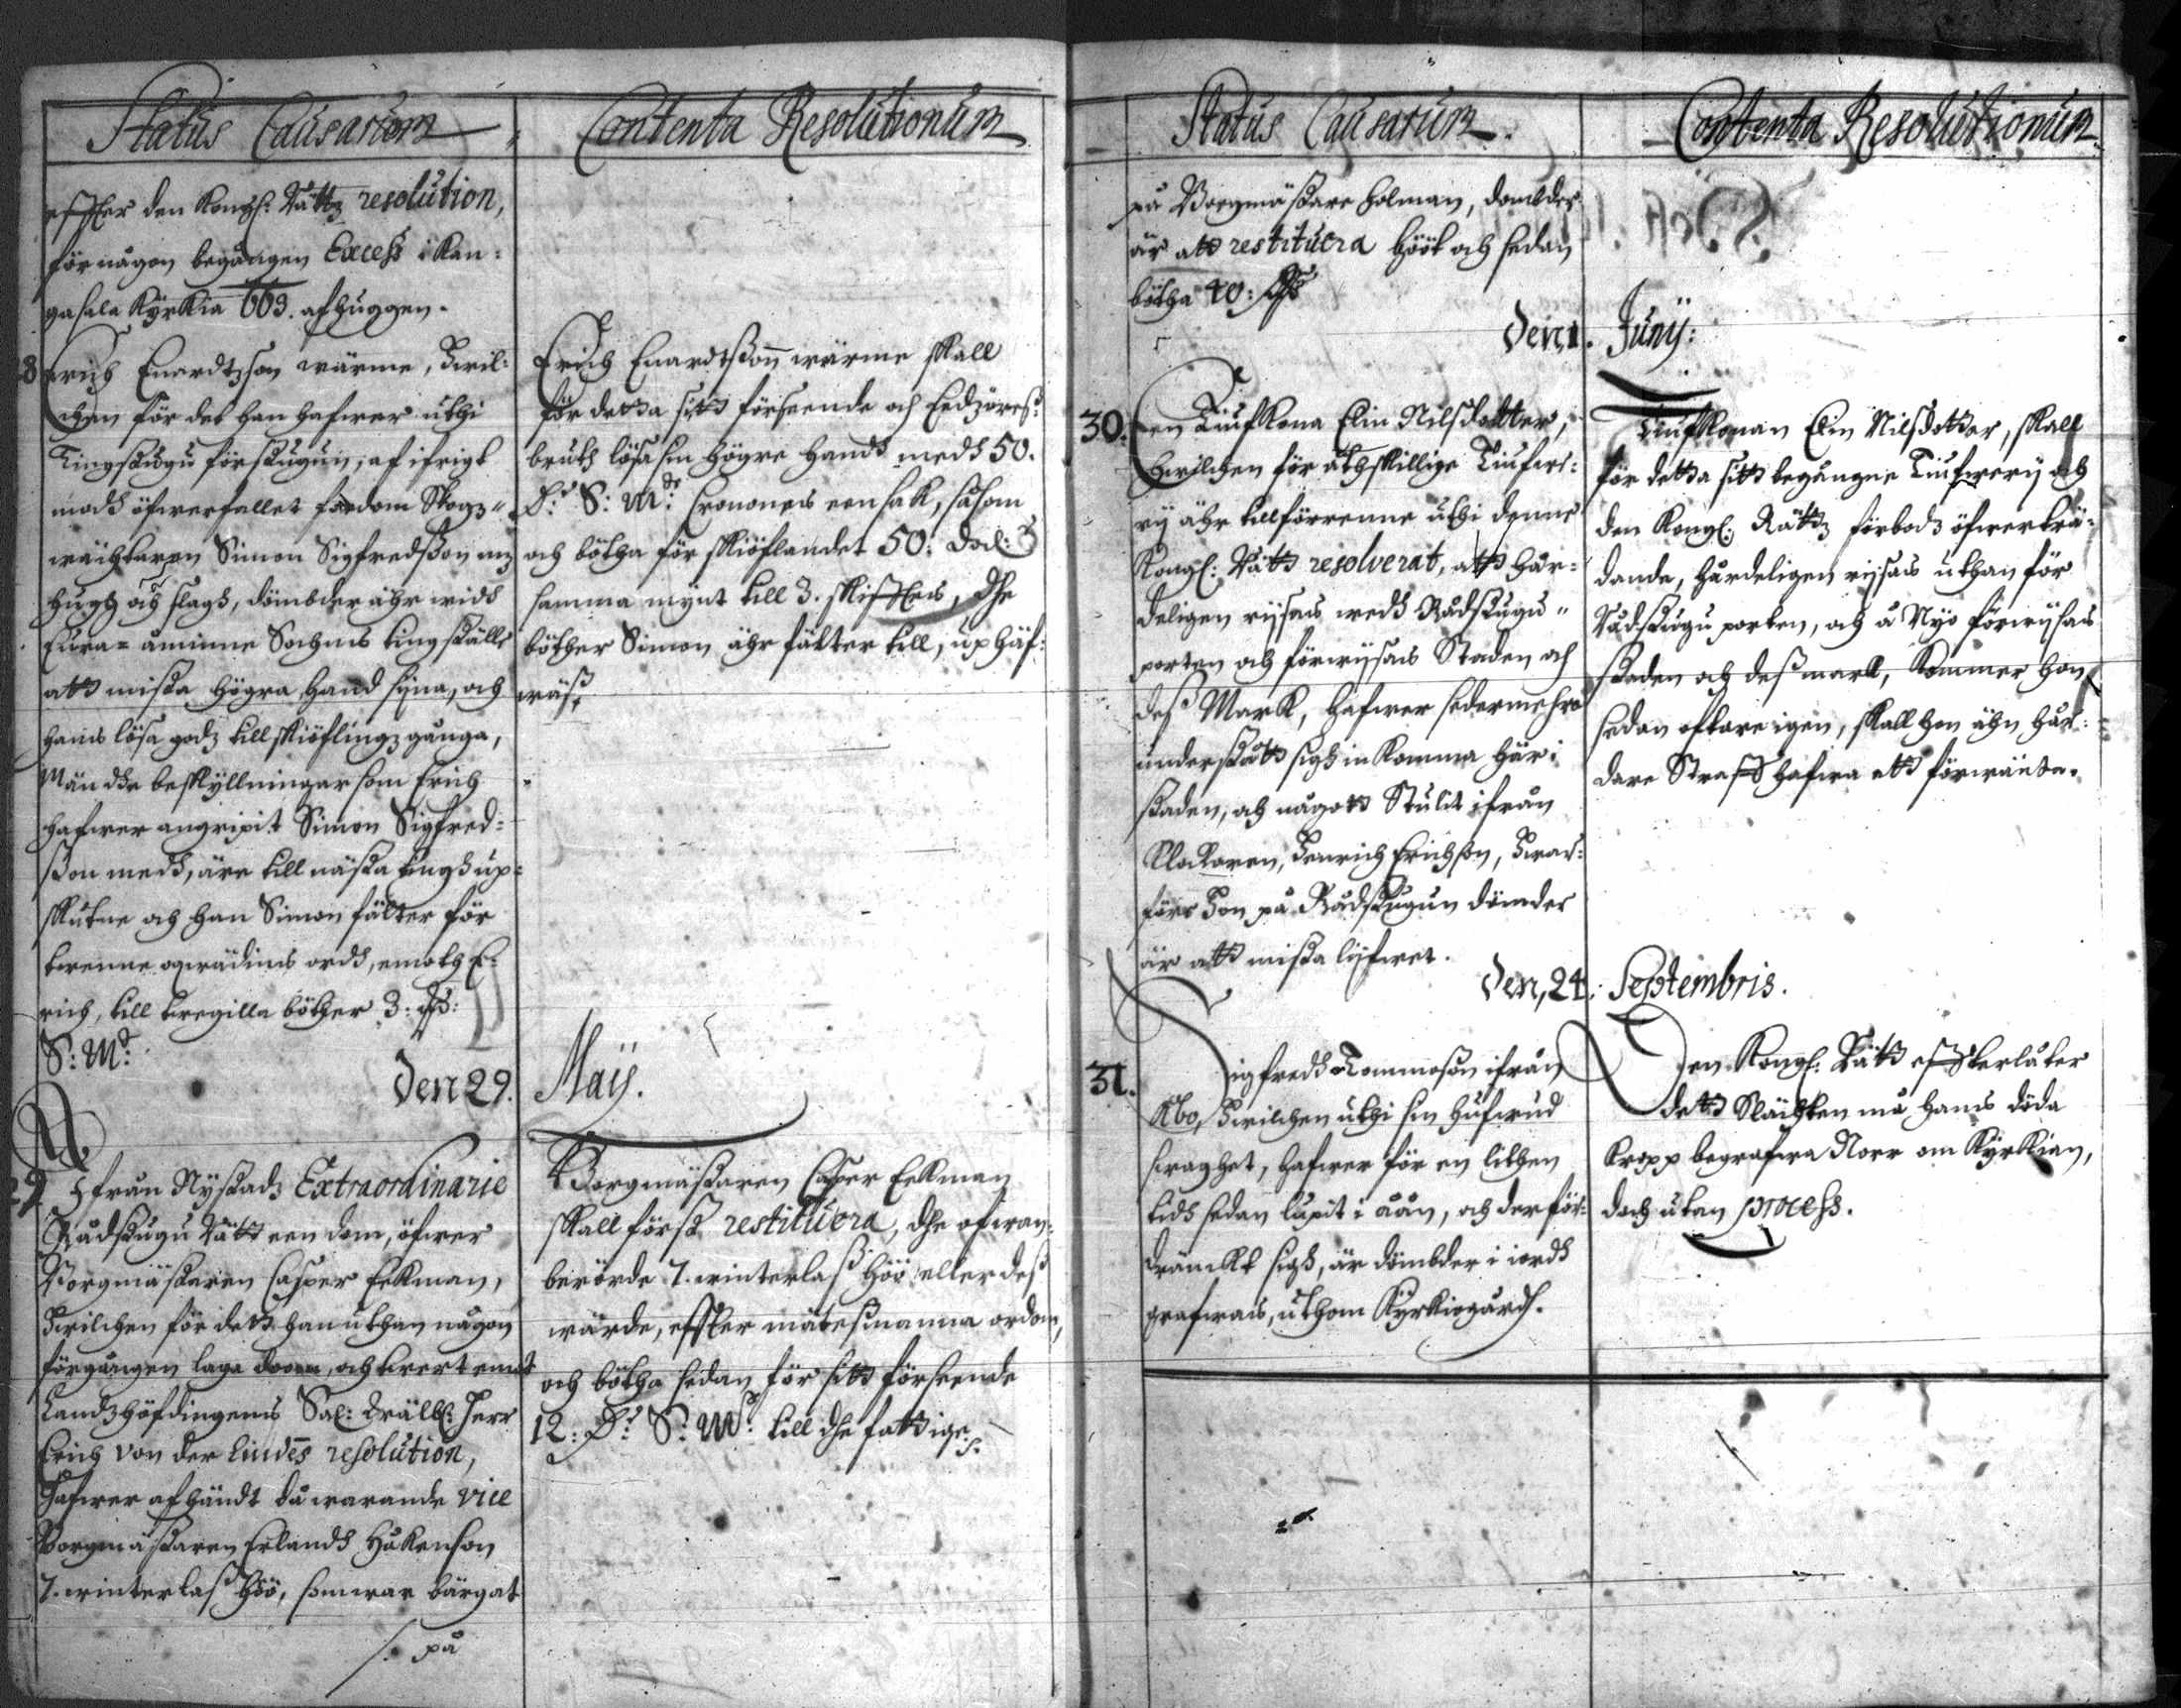 Status Causarum
effter den Kongl: Rättz resolution,
för någon begången Excess i Kan:
gasala Kyrkia 663. afhuggen.
28 Erich Enardtzson wärme, hwil:
chen för det han hafwer uthi
Tingstugu förstugun, af ifrigt
modh öfwerfallet fordom Skogz"
wächtaren Simon Sigfredsson
hugh och slagh, dömbder ähr widh
Eura= åminne Sochns tingställe
att mista högra hand syna, och
hans lösa godz till skiöflingz gånga,
Män dhe beskyllningar som Erich
hafwer angripit Simon Sigfred:
sson medh, äre till nästa tingh up=
skutne och han Simon fälter för
trenne oqwädins ordh, emoth E:
rich, till tregilla böther 3:
S: Mt:
Den 29.
29 Ifrån Nystadz Extraordinarie
Rådstugu Rätt een dom, öfwer
Borgmästaren Casper Eekman,
hwilchen för dett han uthan någon
förgången laga doom, och twert emot
Landzhöfdingens Sal: Wälb: Herr
Erich von der Lindes resolution,
hafwer afhändt då warande vice
Borgmästaren Erlandh Håkenson
7. winterlass höö, som war bärgat
/. på
Contenta Resolutionum
Erich Enardtsson wärme skall
för detta sitt förseende och Eedzöres:
bruth lösa sin högre handh medh 50.
Dr S: Mt: Cronones eensak, såsom
och bötha för skiöflandet 50: Dal:
samma mynt till 3. skifftes, dhe
böther Simon ähr fälter till, uphäf:
was.
Maÿ.
Borgmästaren Casper Eekman
skall först restituera, dhe ofwan:
berörde 7. winterlass höö eller dess
wärde, effter mätesmanna ordom,
och bötha sedan för sitt förseende
12: Dr: S: Mt: till dhe fattige.
Status Causarum.
på Borgmästare holman, dombder
är att restituera höökoch sedan
bötha 40:
Den 1.
30. En Tiufkona Elin Nilsdotter,
hwilchen för åthskillige Tiufwe:
ry ähr tillförrenne uthi denne
Kongl: Rätt resolverat, att hår=
deligen rysas wedh Rådstugu"
porten och förwysas Staden och
dess Mark, hafwer sedermehra
understått sigh in komma här i
staden, och någott Stulit ifrån
Klockaren, Henrich Erichson, hwar:
före hon på Rådstugun dömder
är att mista lyfwet.
Den, 24.
31. Sigfredh Tommoson ifrån
Åbo, hwilchen uthi sin hufwud
swaghet, hafwer för en lithen
tidh sedan lupit i åån, och der för:
dränckt sigh, är dömbder i iordh
grafwas, uthom Kyrkiogårdh.
Contenta Resolutionum
Juny:
Tiufkonan Elin Nilsdotter, skall
för detta sitt begångne Tiufwery och
den Kongl: Rättz förbodz öfwerträ:
dande, hårdeligen rysas uthan för
Rådstugu porten, och å Nyo förwysas
staden och dess mark, kommer hon
sedan oftare igen, skall hon ähn hår:
dare Straff hafwa att förwänta.
Septembris.
Den Kongl: Rätt effterlåter
dett Slächten må hans döda
kropp begrafwa Norr om Kyrkian,
doch utan process.